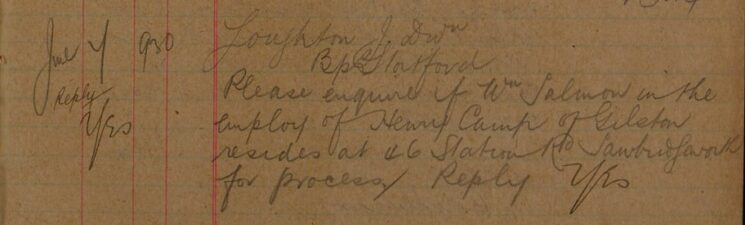 June 7 930 Loughton J. Divn
Bp Stortford
Reply
Yes
Please enquire if Wm Salmon in the
employ of Henry Camp of Gilston
resides at 46 Station Rd Sawbridgeworth
for process/ Reply Yes